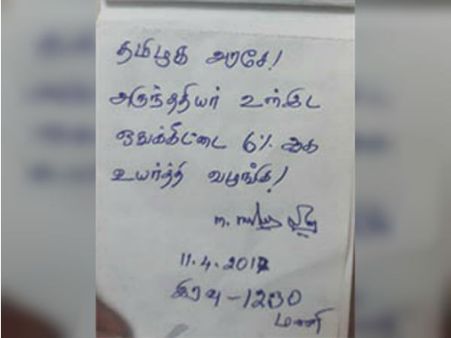 தமிழக அரசே!
அருந்ததியர் உள்இட
ஒதுக்கீட்டை 6% ஆக
உயர்த்தி வழங்கு!
11.4.2017
இரவு - 1230
மணி